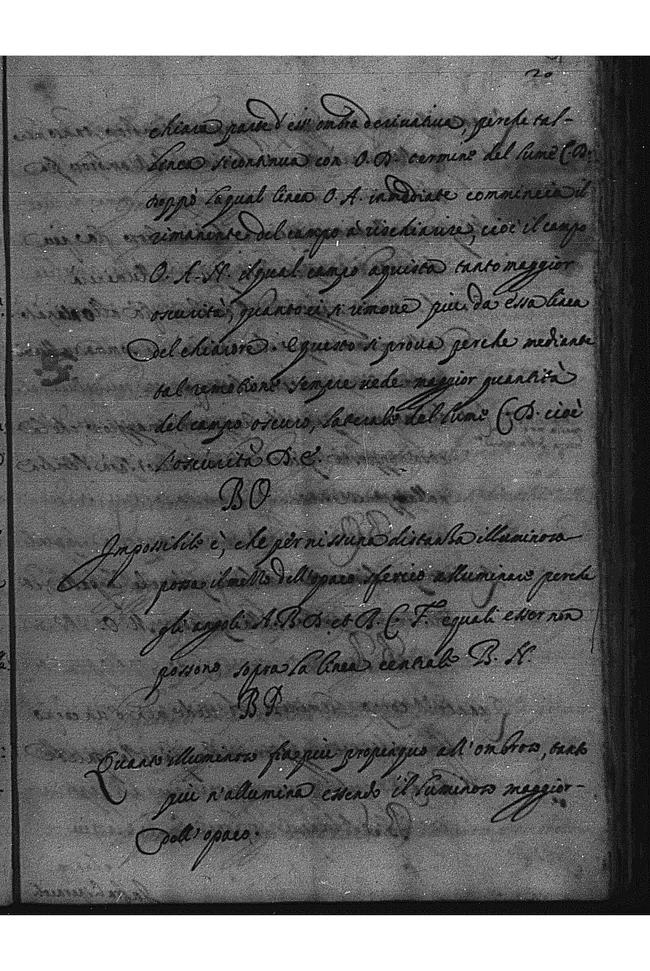 20
chiara parte d'ess' ombra derivativa, perche tal-
linea si continua con O. D. termine del lume C. D.
doppò laqual linea O. A. immediate commincia il
rimanente del campo à rischiarire, cioè il campo
O. A. N. ilqual campo aquista tanto maggior
oscurità, quanto ei si rimove piu da essa linea
del chiarore. E questo si prova perche mediante
tal remotione sempre vede maggior quantità
del campo oscuro, laterale del lume C. D. cioè
l'oscurità D. E.
BO
Impossibile è, che per nissuna distanza illuminoso
possa il mezzo dell'opaco sferico alluminare perche
gli angoli A. B. D. et B. C. F. equali esser non
possono sopra la linea centrale B. N.
BP
Quanto illuminoso fia più propinquo all'ombroso, tanto
più n'allumina essendo il luminoso maggior-
dell'opaco.